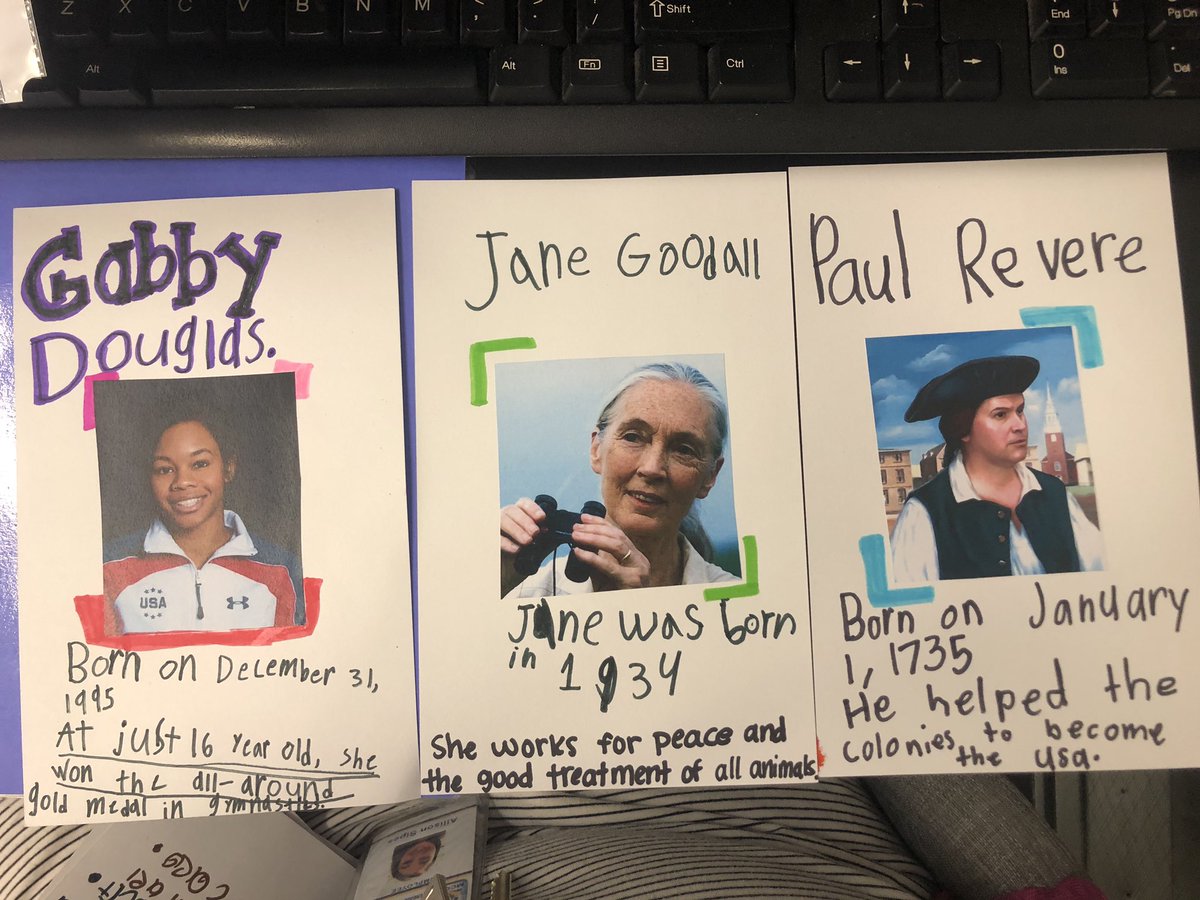 Z
X
C
V
B
N
M
Shift
End
Pg Dn
Alt
Alt
Fn
Ctrl
0
Ins
Del
Gabby
Douglas.
USA
Born on December 31,
1995
At just 16 year old, she
won the all-around
gold medal in gymnastics.
Jane Goodall
Jane was born
in 1934
She works for peace and
the good treatment of all animals.
Paul Revere
Born on January
1, 1735
He helped the
colonies to become
the usa.
Allison